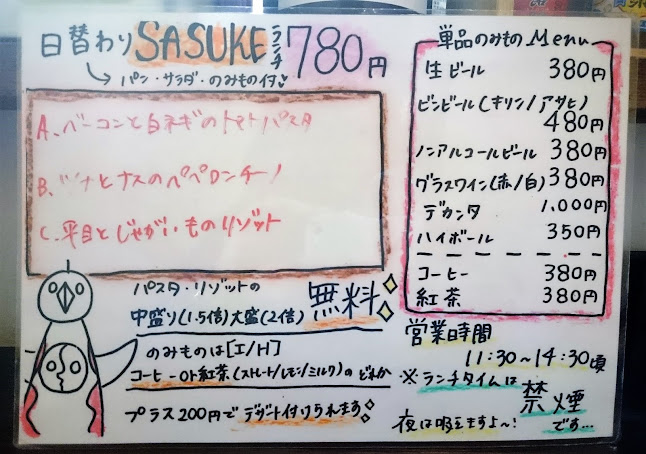 日替わりSASUKEランチ780円
パン・サラダ・のみもの付
A、ベーコンと白ネギのトマトパスタ
B、ツナとナスのペペロンチーノ
C、平目とじゃがいものリゾット
パスタ・リゾットの
中盛り(1.5倍)大盛(2倍)無料
のみものは[I/H]
コーヒーor紅茶(ストレート/レモン/ミルク)のどれか
プラス200円でデザート付けられます
単品のみものMenu
生ビール 380円
ビンビール(キリン/アサヒ)
480円
ノンアルコールビール 380円
グラスワイン(赤/白)380円
デカンタ 1,000円
ハイボール 350円
コーヒー 380円
紅茶 380円
営業時間
11:30~14:30頃
※ランチタイムは
禁煙
です…
夜は吸えますよ~!